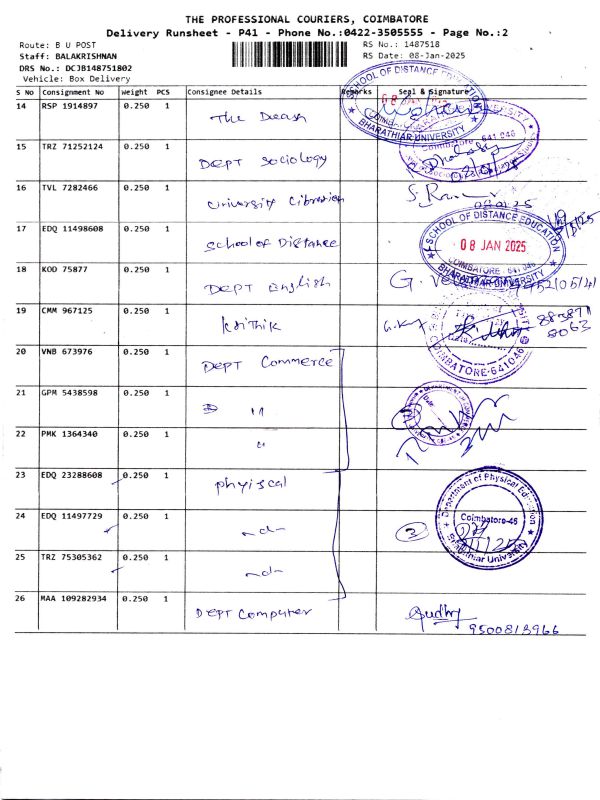 THE PROFESSIONAL COURIERS, COIMBATORE
Delivery Runsheet - P41 - Phone No.:0422-3505555 - Page No.:2
Route: B U POST
RS No.: 1487518
Staff: BALAKRISHNAN
RS Date: 08-Jan-2025
DRS No.: DCJB148751802
Vehicle: Box Delivery
S No Consignment No Weight PCS Consignee Details Remarks Seal & Signature
14 RSP 1914897 0.250 1 The Dean
SCHOOL OF DISTANCE EDUCATION
BHARATHIAR UNIVERSITY
15 TRZ 71252124 0.250 1 DEPT Sociology
Coimbatore 641 046
16 TVL 7282466 0.250 1 University Librarian
17 EDQ 11498608 0.250 1 School of Distance
SCHOOL OF DISTANCE EDUCATION
08 JAN 2025
COIMBATORE - 641 046
BHARATHIAR UNIVERSITY
18 KOD 75877 0.250 1 DEPT English
19 CMM 967125 0.250 1
COIMBATORE-641046
20 VNB 673976 0.250 1 DEPT Commerce
21 GPM 5438598 0.250 1 D 11
22 PMK 1364340 0.250 1 "
23 EDQ 23288608 0.250 1 phyiscal
Department of Physical Education
Coimbatore-46
Bharathiar University
24 EDQ 11497729 0.250 1 -d- 2
25 TRZ 75305362 0.250 1 -d-
26 MAA 109282934 0.250 1 DEPT Computer
9500813966